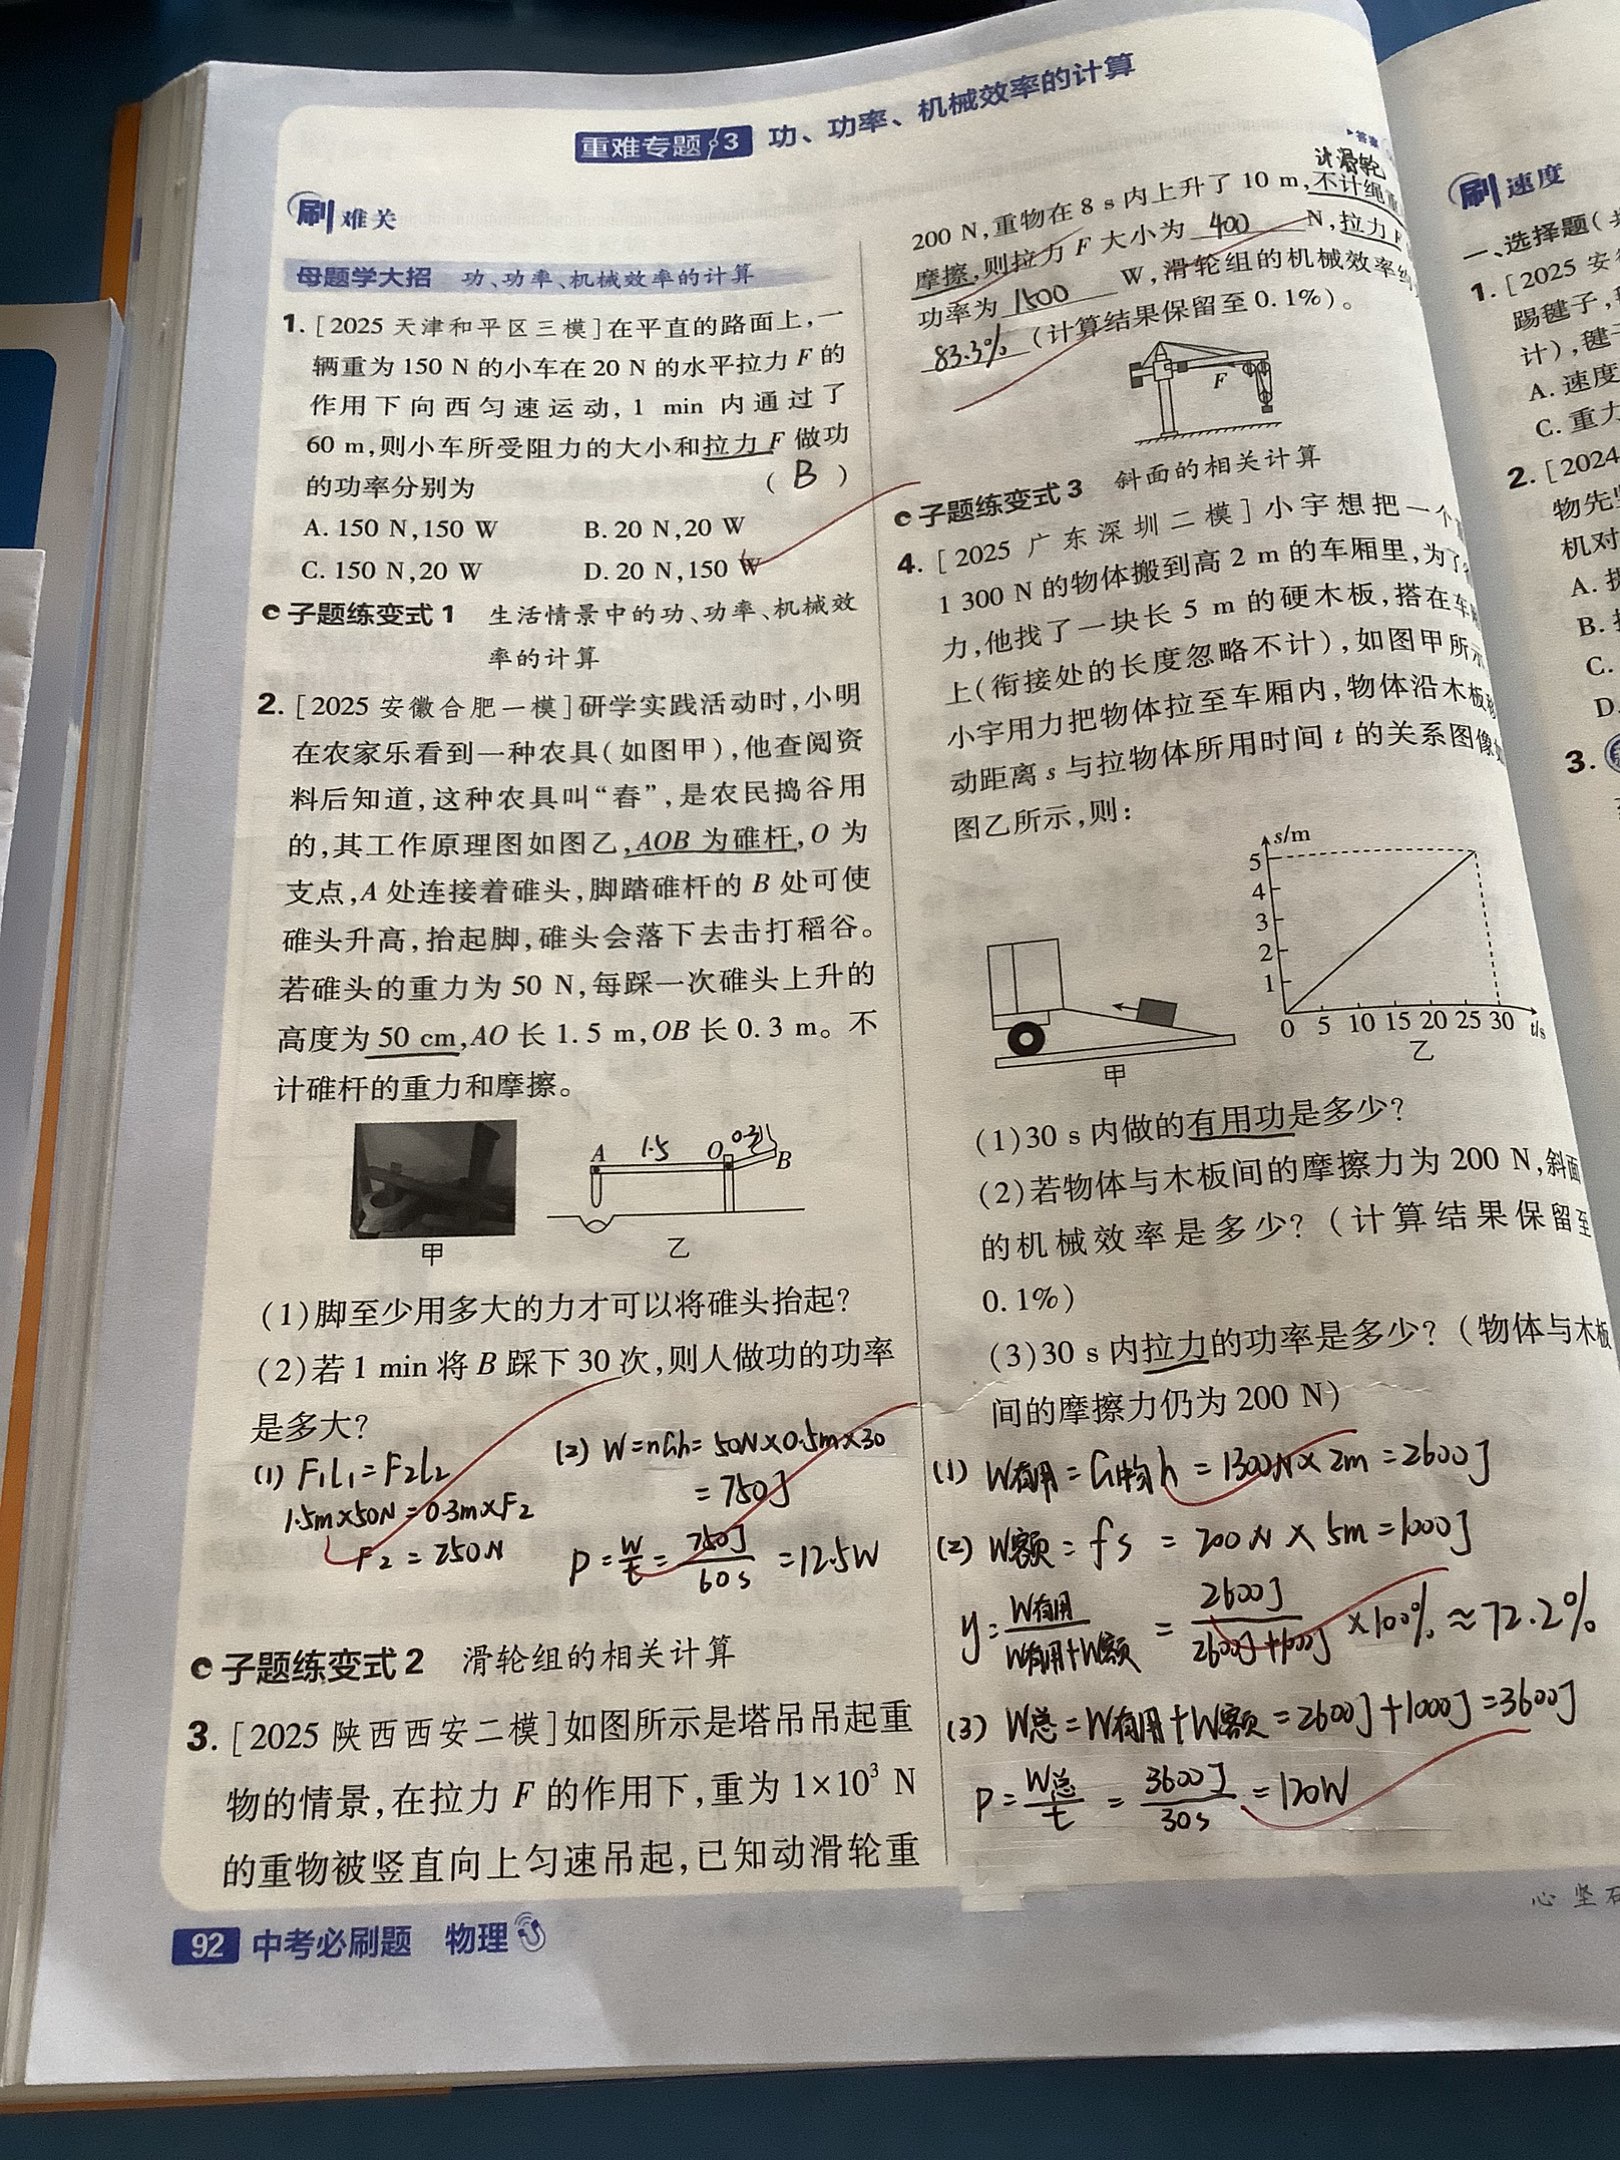 重难专题3 功、功率、机械效率的计算
刷难关
母题学大招 功、功率、机械效率的计算
1. [2025 天津和平区三模]在平直的路面上,一
辆重为 150 N 的小车在 20 N 的水平拉力 F 的
作用下向西匀速运动, 1 min 内通过了
60 m,则小车所受阻力的大小和拉力 F 做功
的功率分别为 ( B )
A. 150 N,150 W B. 20 N,20 W
C. 150 N,20 W D. 20 N,150 W
子题练变式1 生活情景中的功、功率、机械效
率的计算
2. [2025 安徽合肥一模]研学实践活动时,小明
在农家乐看到一种农具(如图甲),他查阅资
料后知道,这种农具叫“舂”,是农民捣谷用
的,其工作原理图如图乙,AOB 为碓杆,O 为
支点,A 处连接着碓头,脚踏碓杆的 B 处可使
碓头升高,抬起脚,碓头会落下去击打稻谷。
若碓头的重力为 50 N,每踩一次碓头上升的
高度为 50 cm,AO 长 1.5 m,OB 长 0.3 m。不
计碓杆的重力和摩擦。
A 1.5 O 0.3 B
甲 乙
(1)脚至少用多大的力才可以将碓头抬起?
(2)若 1 min 将 B 踩下 30 次,则人做功的功率
是多大?
(1) F₁l₁=F₂l₂
1.5m×50N=0.3m×F₂
F₂=250N
(2) W=nGh=50N×0.5m×30
=750J
P=W/t=750J/60s=12.5W
子题练变式2 滑轮组的相关计算
3. [2025 陕西西安二模]如图所示是塔吊吊起重
物的情景,在拉力 F 的作用下,重为 1×10³ N
的重物被竖直向上匀速吊起,已知动滑轮重
92 中考必刷题 物理
答案
计滑轮
200 N,重物在 8 s 内上升了 10 m,不计绳重
摩擦,则拉力 F 大小为 400 N,拉力 F
功率为 1500 W,滑轮组的机械效率约
83.3% (计算结果保留至 0.1%)。
F
子题练变式3 斜面的相关计算
4. [2025 广东深圳二模]小宇想把一个
1 300 N 的物体搬到高 2 m 的车厢里,为了
力,他找了一块长 5 m 的硬木板,搭在车
上(衔接处的长度忽略不计),如图甲所示
小宇用力把物体拉至车厢内,物体沿木板
动距离 s 与拉物体所用时间 t 的关系图像
图乙所示,则:
s/m
5
4
3
2
1
0 5 10 15 20 25 30 t/s
甲 乙
(1)30 s 内做的有用功是多少?
(2)若物体与木板间的摩擦力为 200 N,斜面
的机械效率是多少?(计算结果保留至
0.1%)
(3)30 s 内拉力的功率是多少?(物体与木板
间的摩擦力仍为 200 N)
(1) W有用=G物h=1300N×2m=2600J
(2) W额=fs=200N×5m=1000J
y=W有用/W有用+W额=2600J/2600J+1000J×100%≈72.2%
(3) W总=W有用+W额=2600J+1000J=3600J
P=W总/t=3600J/30s=120W
刷速度
一、选择题(
1. [2025 安
踢毽子,
计),毽
A. 速度
C. 重力
2. [2024
物先
机对
A.
B.
C.
D.
3.
心 坚 石